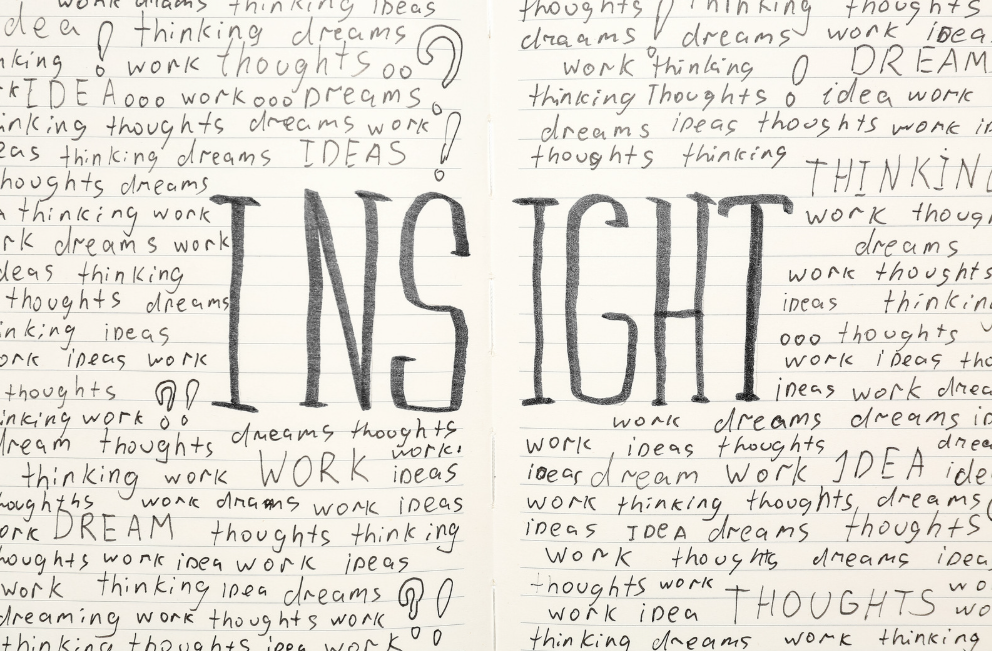 work dreams thinking ideas
dea ! thinking dreams ?
nking ! work thoughts oo
rk IDEA ooo work ooo Dreams
inking thoughts dreams work !
eas thinking dreams IDEAS
houghts dreams
thinking work
rk dreams work
deas thinking
thoughts dreams
inking ideas
ork ideas work
thoughts ?!
inking work
INS
dream thoughts dreams thoughts
work.
thinking work WORK ideas
houghths work drams work ideas
ork DREAM thoughts thinking
houghts work idea work ideas
work thinking idea dreams ?!
dreaming work thoughts work
thinking thoughts idea work
thoughts ! thinking thoughts
draams dreams work idea
work thinking ! DREAM
thinking Thoughts idea work
dreams ideas thoughts work id
thoughts thinking THINKING
IGHT
work though
dreams
work thoughts
ideas thinkin
ooo thoughts
work ideas tho
ideas work drea
work dreams dreams id
work ideas thoughts drea
ideas dream Work IDEA ide
work thinking thoughts, dreams
ideas IDEA dreams thoughts
Work thoughts dreams idea
thoughts work wo
work idea THOUGHTS wo
thinking dreams work thinking